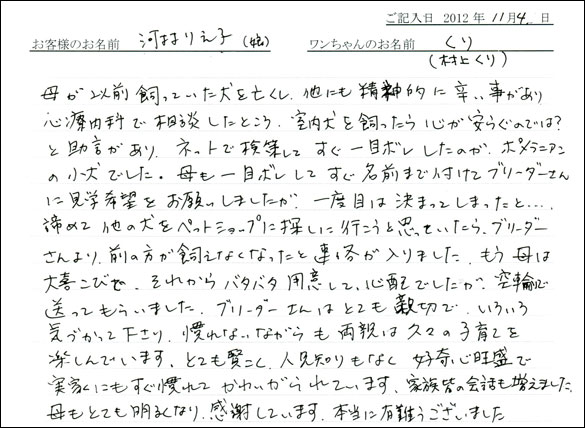 ご記入日 2012 年 11月 4 日
お客様のお名前 河村りえ子 (娘) ワンちゃんのお名前 くり
(村上くり)
母が以前飼っていた犬を亡くし、他にも精神的に辛い事があり
心療内科で相談したところ、室内犬を飼ったら心が安らぐのでは?
と助言があり、ネットで検索してすぐ一目ボレしたのが、ポメラニアン
の小犬でした。母も一目ボレしてすぐ名前まで付けてブリーダーさん
に見学希望をお願いしましたが、一度目は決まってしまったと‥‥、
諦めて他の犬をペットショップに探しに行こうと思っていたら、ブリーダー
さんより、前の方が飼えなくなったと連絡が入りました。もう母は
大喜こびで、それからバタバタ用意して、心配でしたが、空輸で
送ってもらいました。ブリーダーさんはとても親切で、いろいろ
気づかって下さり、慣れないながらも両親は久々の子育てを
楽しんでいます。とても賢こく、人見知りもなく 好奇心旺盛で
実家にもすぐ慣れて かわいがられています。家族皆の会話も増えました。
母もとても明るくなり、感謝しています。本当に有難うございました